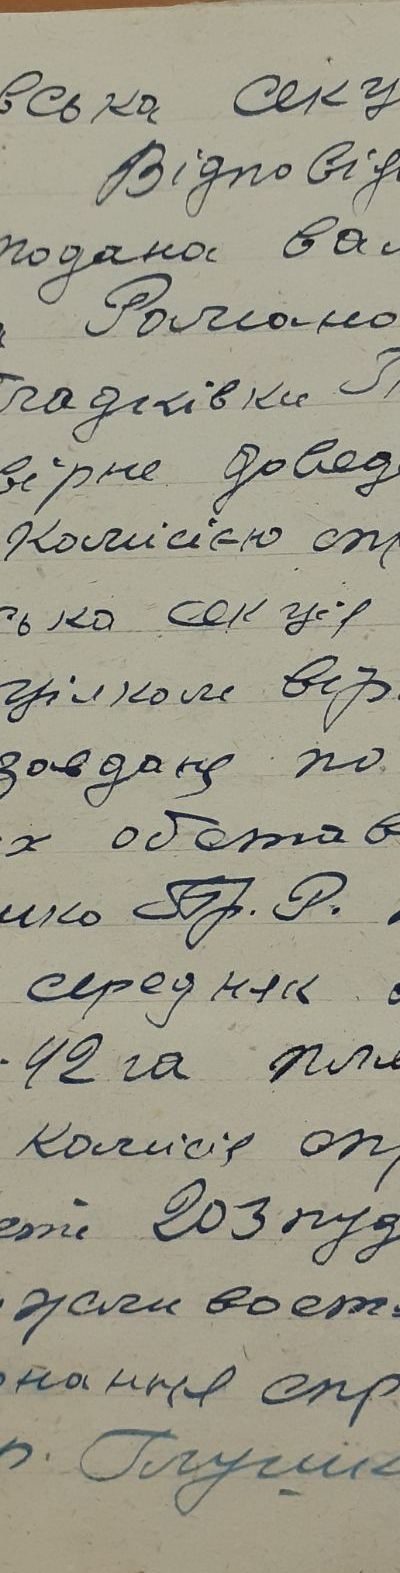 вська секу
Відповід
подана вал
Романо
Гладківки
вірне довед
Комісією сп
ська секція
цілком вір
завдань по
х обстав
шко Пр. Р.
середняк
-42 га пля
комісія сп
203 пуд
жали воста
онання спр
Глушк